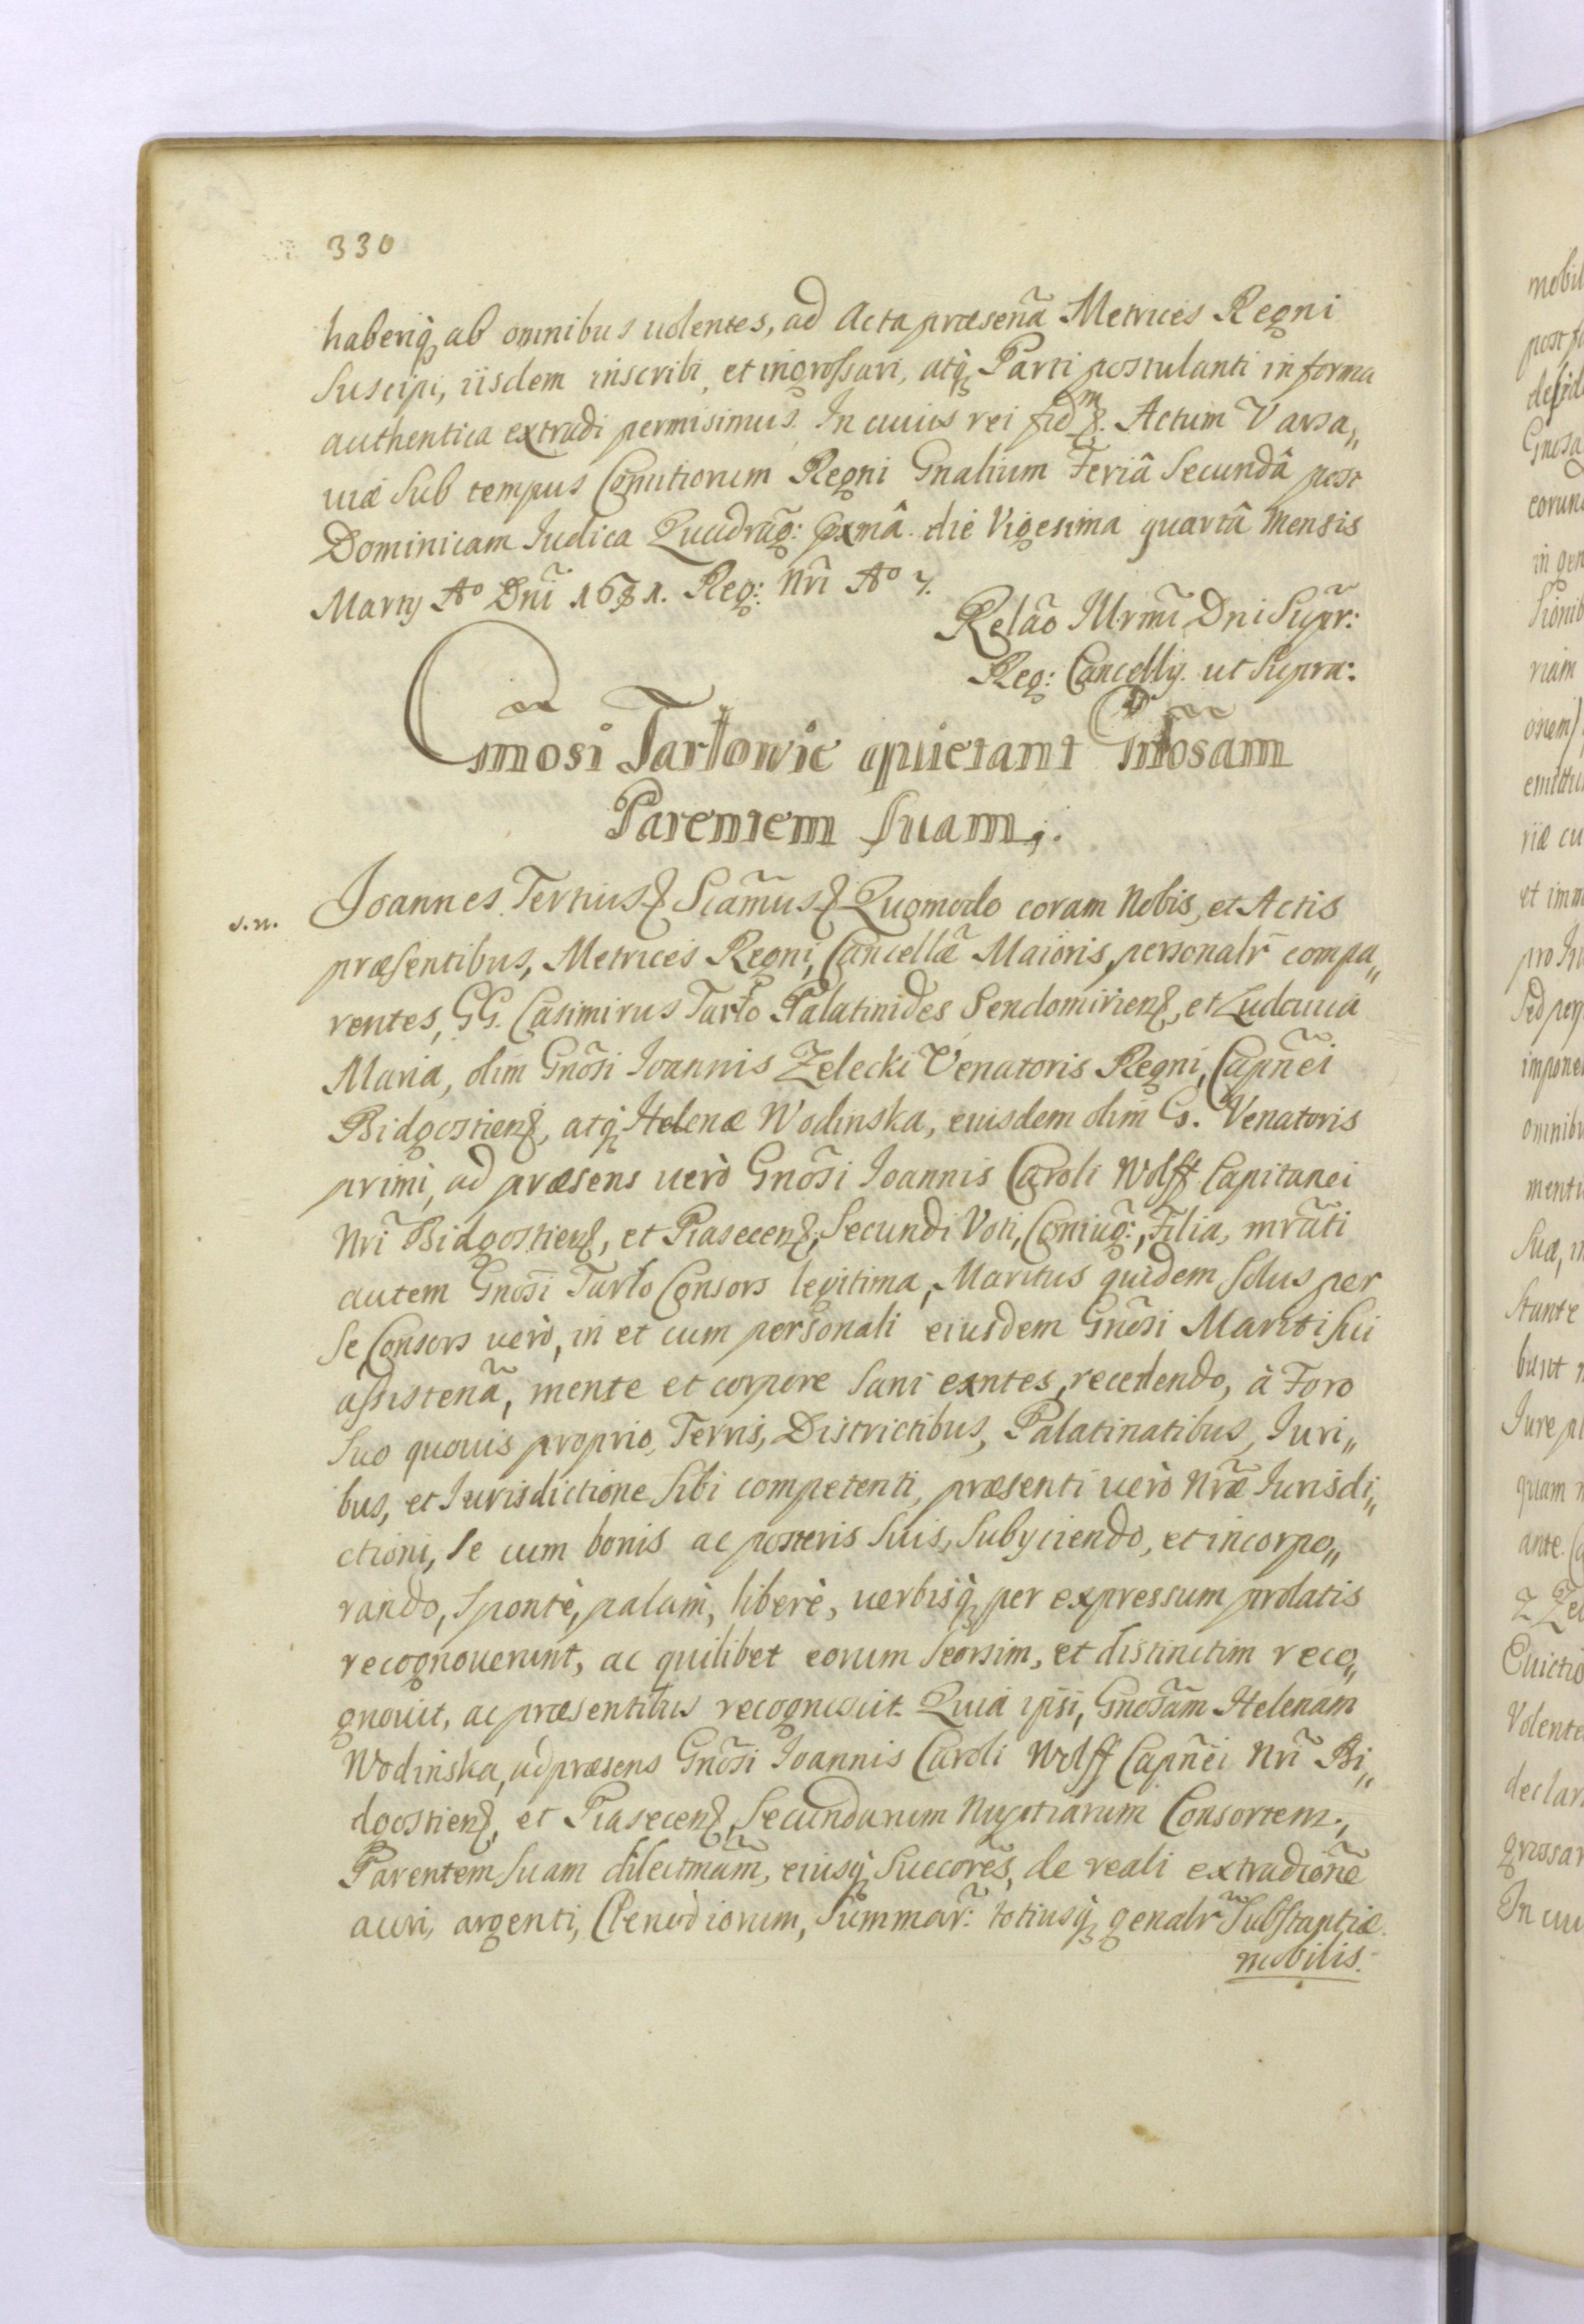 330
haberiq̃ ab omnibus uolentes, ad Acta præseña Metrices Regni
Suscipi, iisdem inscribi, et ingrossari, atq̃ Parti postulanti in forma
authentica extradi permisimus. In cuius rei fidm &. Actum Varsa„
uiæ Sub tempus Comitiorum Regni Gnalium Feriâ Secundâ post
Dominicam Iudica Quadrag̃: pxmâ. die Vigesima quartâ Mensis
Marty Aº Dnĩ 1681. Reg: Nrĩ Aº 7.
Relão Illrmĩ Dni Supr̃:
Reg: Cancellÿ. ut Supra:
Gñosi Tarłowie quietant Gñosam
Parentem Suam;.
s.n. Joannes Tertius & Sĩgm̃us & Quomodo coram Nobis, et Actis
præsentibus, Metrices Regni, Cancellæ̃ Maioris, personalr̃ compa„
rentes, GG. Casimirus Tarło Palatinides Sendomirien&, et Ludouica
Maria, olim Gnõsi Ioannis Zelecki Venatoris Regni, Capñei
Bidgostien&, atq̃ Helenæ Wodinska, eiusdem olim G. Venatoris
primi, ad præsens uerò Gnõsi Ioannis Caroli Wolff Capitanei
Nrĩ Bidgostien&, et Piasecen&, Secundi Voti, Coniug̃:, Filia, mrãti
autem Gnõsi Tarło Consors legitima, Maritus quidem Solus per
Se Consors uerò, in et cum personali eiusdem Gnõsi Mariti Sui
assisteñã, mente et corpore Sani exntes, recedendo, à Foro
Suo quouis proprio, Terris, Districtibus, Palatinatibus, Iuri„
bus, et Iurisdictione Sibi competenti, præsenti uerò Nræ̃ Iurisdi„
ctioni, Se cum bonis ac posteris Suis, Subyciendo, et incorpo„
rando, Spontè, palàm, liberè, uerbisq̃ per expressum prolatis
recognouerunt, ac quilibet eorum Seorsim, et distinctim reco„
gnouit, ac præsentibus recognoscit. Quia ipsĩ, Gnosãm Helenam
Wodinska, ad præsens Gnõsi Ioannis Caroli Wolff Capñei Nrĩ Bi„
dgostien&, et Piasecen&, Secundarum Nuptiarum Consortem,
Parentem Suam dilectmãm, eiusq̃ Succorẽs, de reali extradiõne
auri, argenti, Clenodiorum, Summar̃: totiusq̃ genalr̃ Substantiæ
mobilis.